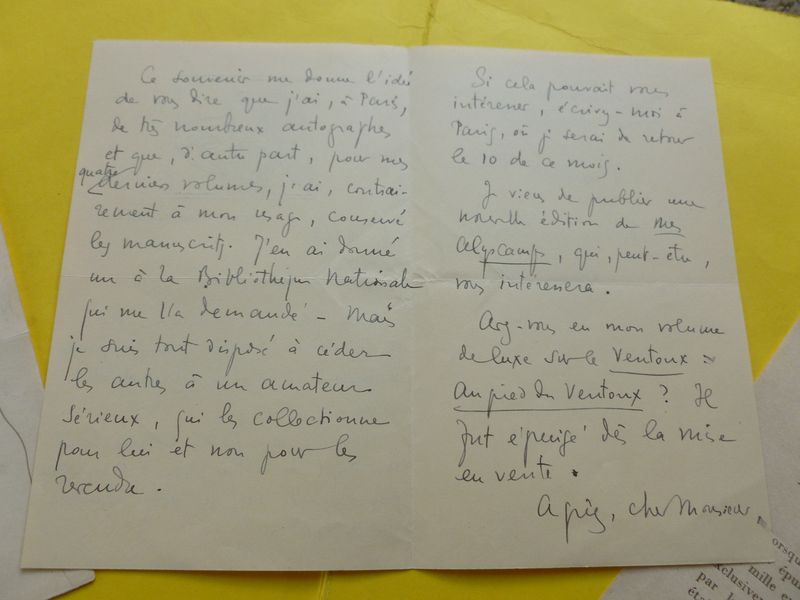 Ce souvenir me donne l'idée
de vous dire que j'ai, à Paris,
de très nombreux autographes
et que, d'autre part, pour mes
quatre
derniers volumes, j'ai, contrai-
rement à mon usage, conservé
les manuscrits. J'en ai donné
un à la Bibliothèque Nationale
qui me l'a demandé - Mais
je suis tout disposé à céder
les autres à un amateur
sérieux, qui les collectionne
pour lui et non pour les
revendre.
Si cela pouvait vous
intéresser, écrivez-moi à
Paris, où je serai de retour
le 10 de ce mois.
Je viens de publier une
nouvelle édition de mes
Alyscamps, qui, peut-être,
vous intéressera.
Avez-vous eu mon volume
de luxe sur le Ventoux :
Au pied du Ventoux ? Il
fut épuisé dès la mise
en vente.
Agréez, cher Monsieur,
orsqu
épu
mille e
exclusive
par l